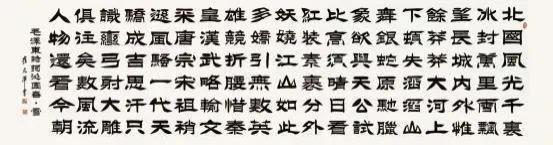 北國風光千裏
冰封萬里雪飄
望長城內外惟
餘莽莽大河上
下頓失滔滔山
舞銀蛇原馳臘
象欲與天公試
比高須晴日看
紅裝素裹分外
妖嬈江山如此
多嬌引無數英
雄競折腰惜秦
皇漢武略輸文
采唐宗宋祖稍
遜風騷一代天
驕成吉思汗只
識彎弓射大雕
俱往矣數風流
人物還看今朝
毛澤東詩詞沁園春·雪